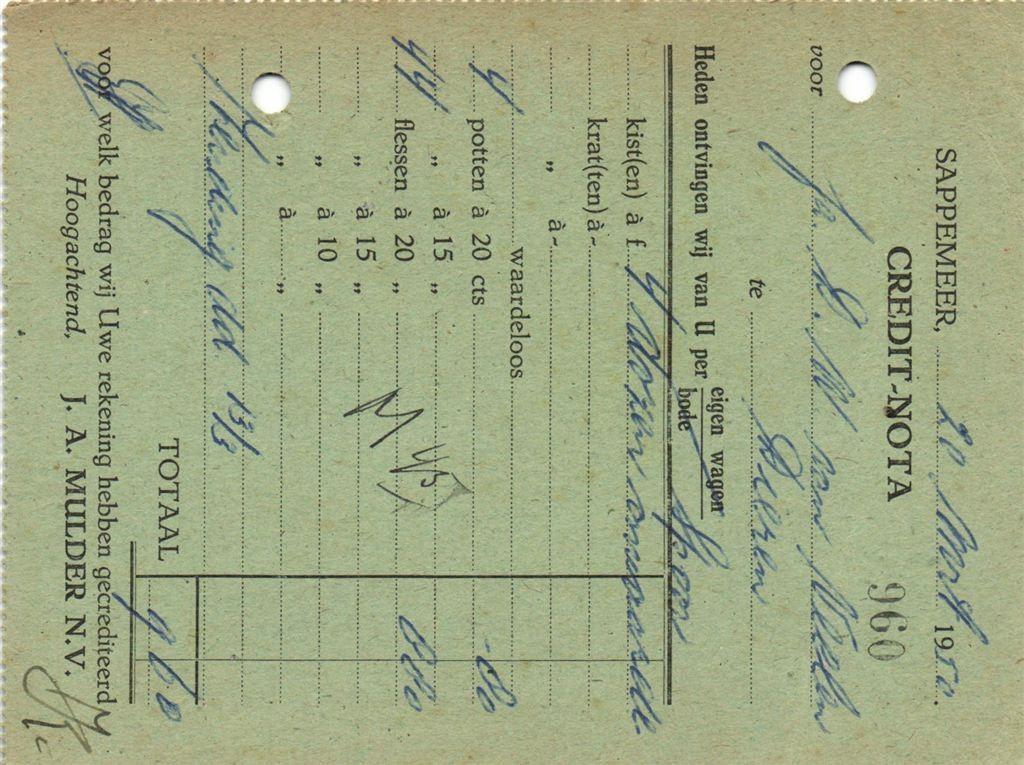 SAPPEMEER, 20 Mrt 1950.
CREDIT-NOTA 960
voor Fa. D. W. van
te Dieren
Heden ontvingen wij van U per eigen wagen
bode Spoor
kist(en) à f. 4 doxen onwaarde.
krat(ten) à -
„ à -
waardeloos
4 potten à 20 cts -80
„ à 15 „
44 flessen à 20 „ 8 80
„ à 15 „
„ à 10 „
„ à „
dd 13/3
TOTAAL 9 60
voor welk bedrag wij Uwe rekening hebben gecrediteerd
Hoogachtend, J. A. MULDER N.V.